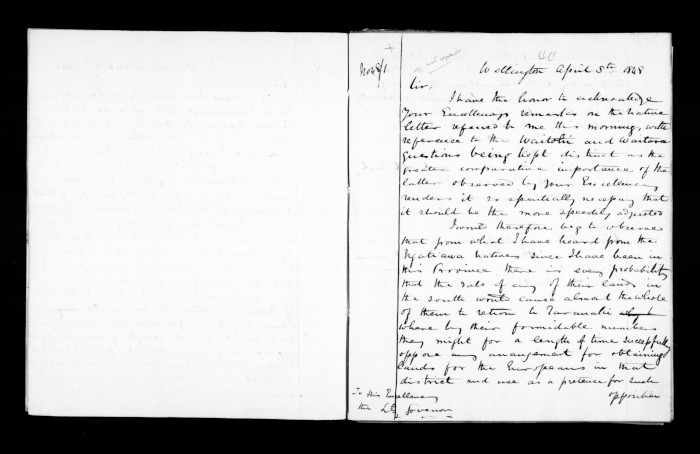 No 48/1
Wellington April 5th 1848
Sir,
I have the honor to acknowledge
Your Excellency's remarks on the native
letter referred to me this morning, with
reference to the Waitohi and Waitara
questions being kept distinct as the
greater comparative importance of the
latter observed by Your Excellency
renders it so essentially necessary that
it should be the more speedily adjusted
I would therefore beg to observe
that from what I have heard from the
Ngatiawa natives since I have been in
this Province there is every probability
that the sale of any of their lands in
the south would cause almost the whole
of them to return to Taranaki
where by their formidable numbers
they might for a length of time successfully
oppose any arrangement for obtaining
lands for the Europeans in that
district and use as a pretence for such
opposition
To His Excellency
the Lt Governor